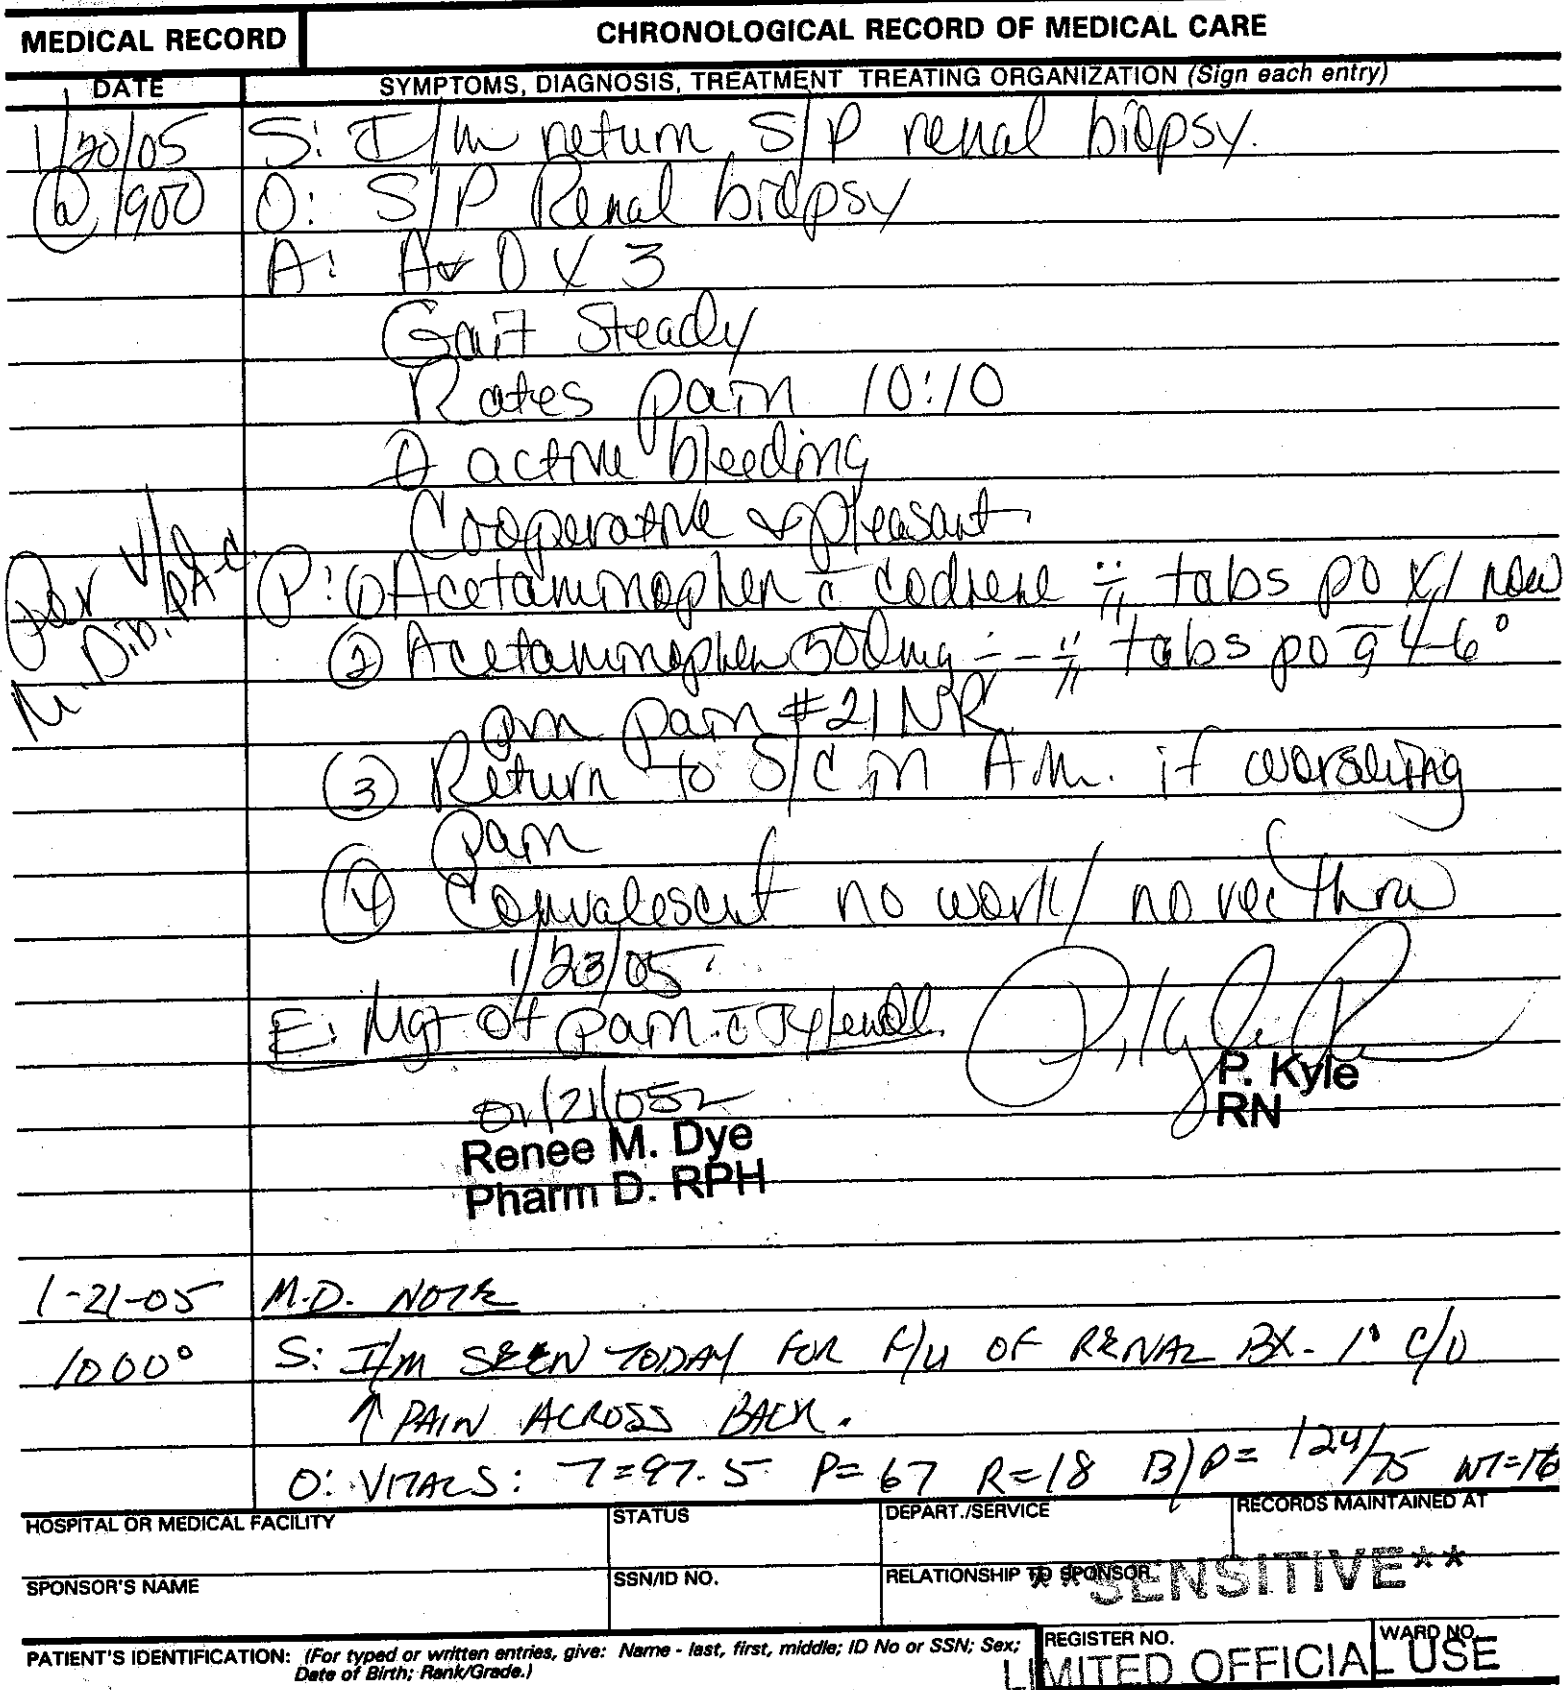 MEDICAL RECORD
CHRONOLOGICAL RECORD OF MEDICAL CARE
DATE
SYMPTOMS, DIAGNOSIS, TREATMENT TREATING ORGANIZATION (Sign each entry)
1/20/05 S: I/m return S/P renal biopsy.
@ 1900 O: S/P Renal biopsy
A: A & O X 3
Gait Steady
Rates pain 10:10
active bleeding
Cooperative & pleasant
Per V/O
P: (1) Acetaminophen c̄ codiene ii tabs po x1 now
(2) Acetaminophen 500mg i - ii tabs po q 4-6°
prn pain #21 NR
(3) Return to S/C in A.M. if worsening
pain
(4) Convalescent no work/ no rec thru
1/23/05
E: Mgt of pain c̄ Tylenol
P. Kyle
RN
01/21/05
Renee M. Dye
Pharm D. RPH
1-21-05 M.D. NOTE
1000° S: I/M SEEN TODAY FOR F/U OF RENAL BX. 1° C/O
↑ PAIN ACROSS BACK.
O: VITALS: T=97.5 P=67 R=18 B/P= 124/75 WT=16
HOSPITAL OR MEDICAL FACILITY
STATUS
DEPART./SERVICE
RECORDS MAINTAINED AT
SPONSOR'S NAME
SSN/ID NO.
RELATIONSHIP TO SPONSOR
**SENSITIVE**
PATIENT'S IDENTIFICATION: (For typed or written entries, give: Name - last, first, middle; ID No or SSN; Sex;
Date of Birth; Rank/Grade.)
REGISTER NO.
WARD NO.
LIMITED OFFICIAL USE